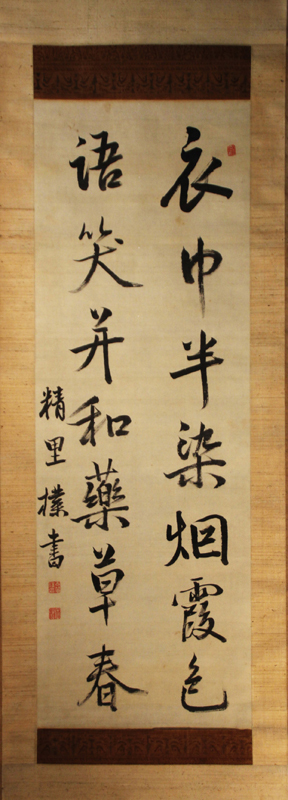 衣巾半染烟霞色
語笑并和藥草春
精里樸書